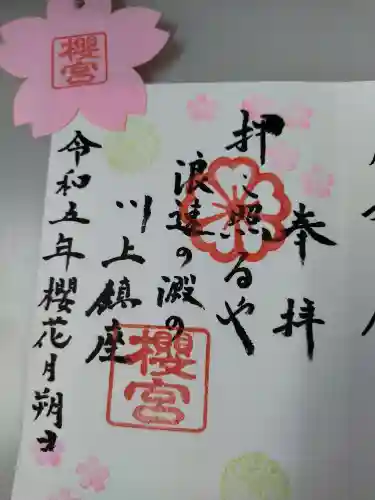 奉拝
押し照るや
浪速の澱の
川上鎮座
令和五年櫻花月朔日
櫻宮
櫻宮